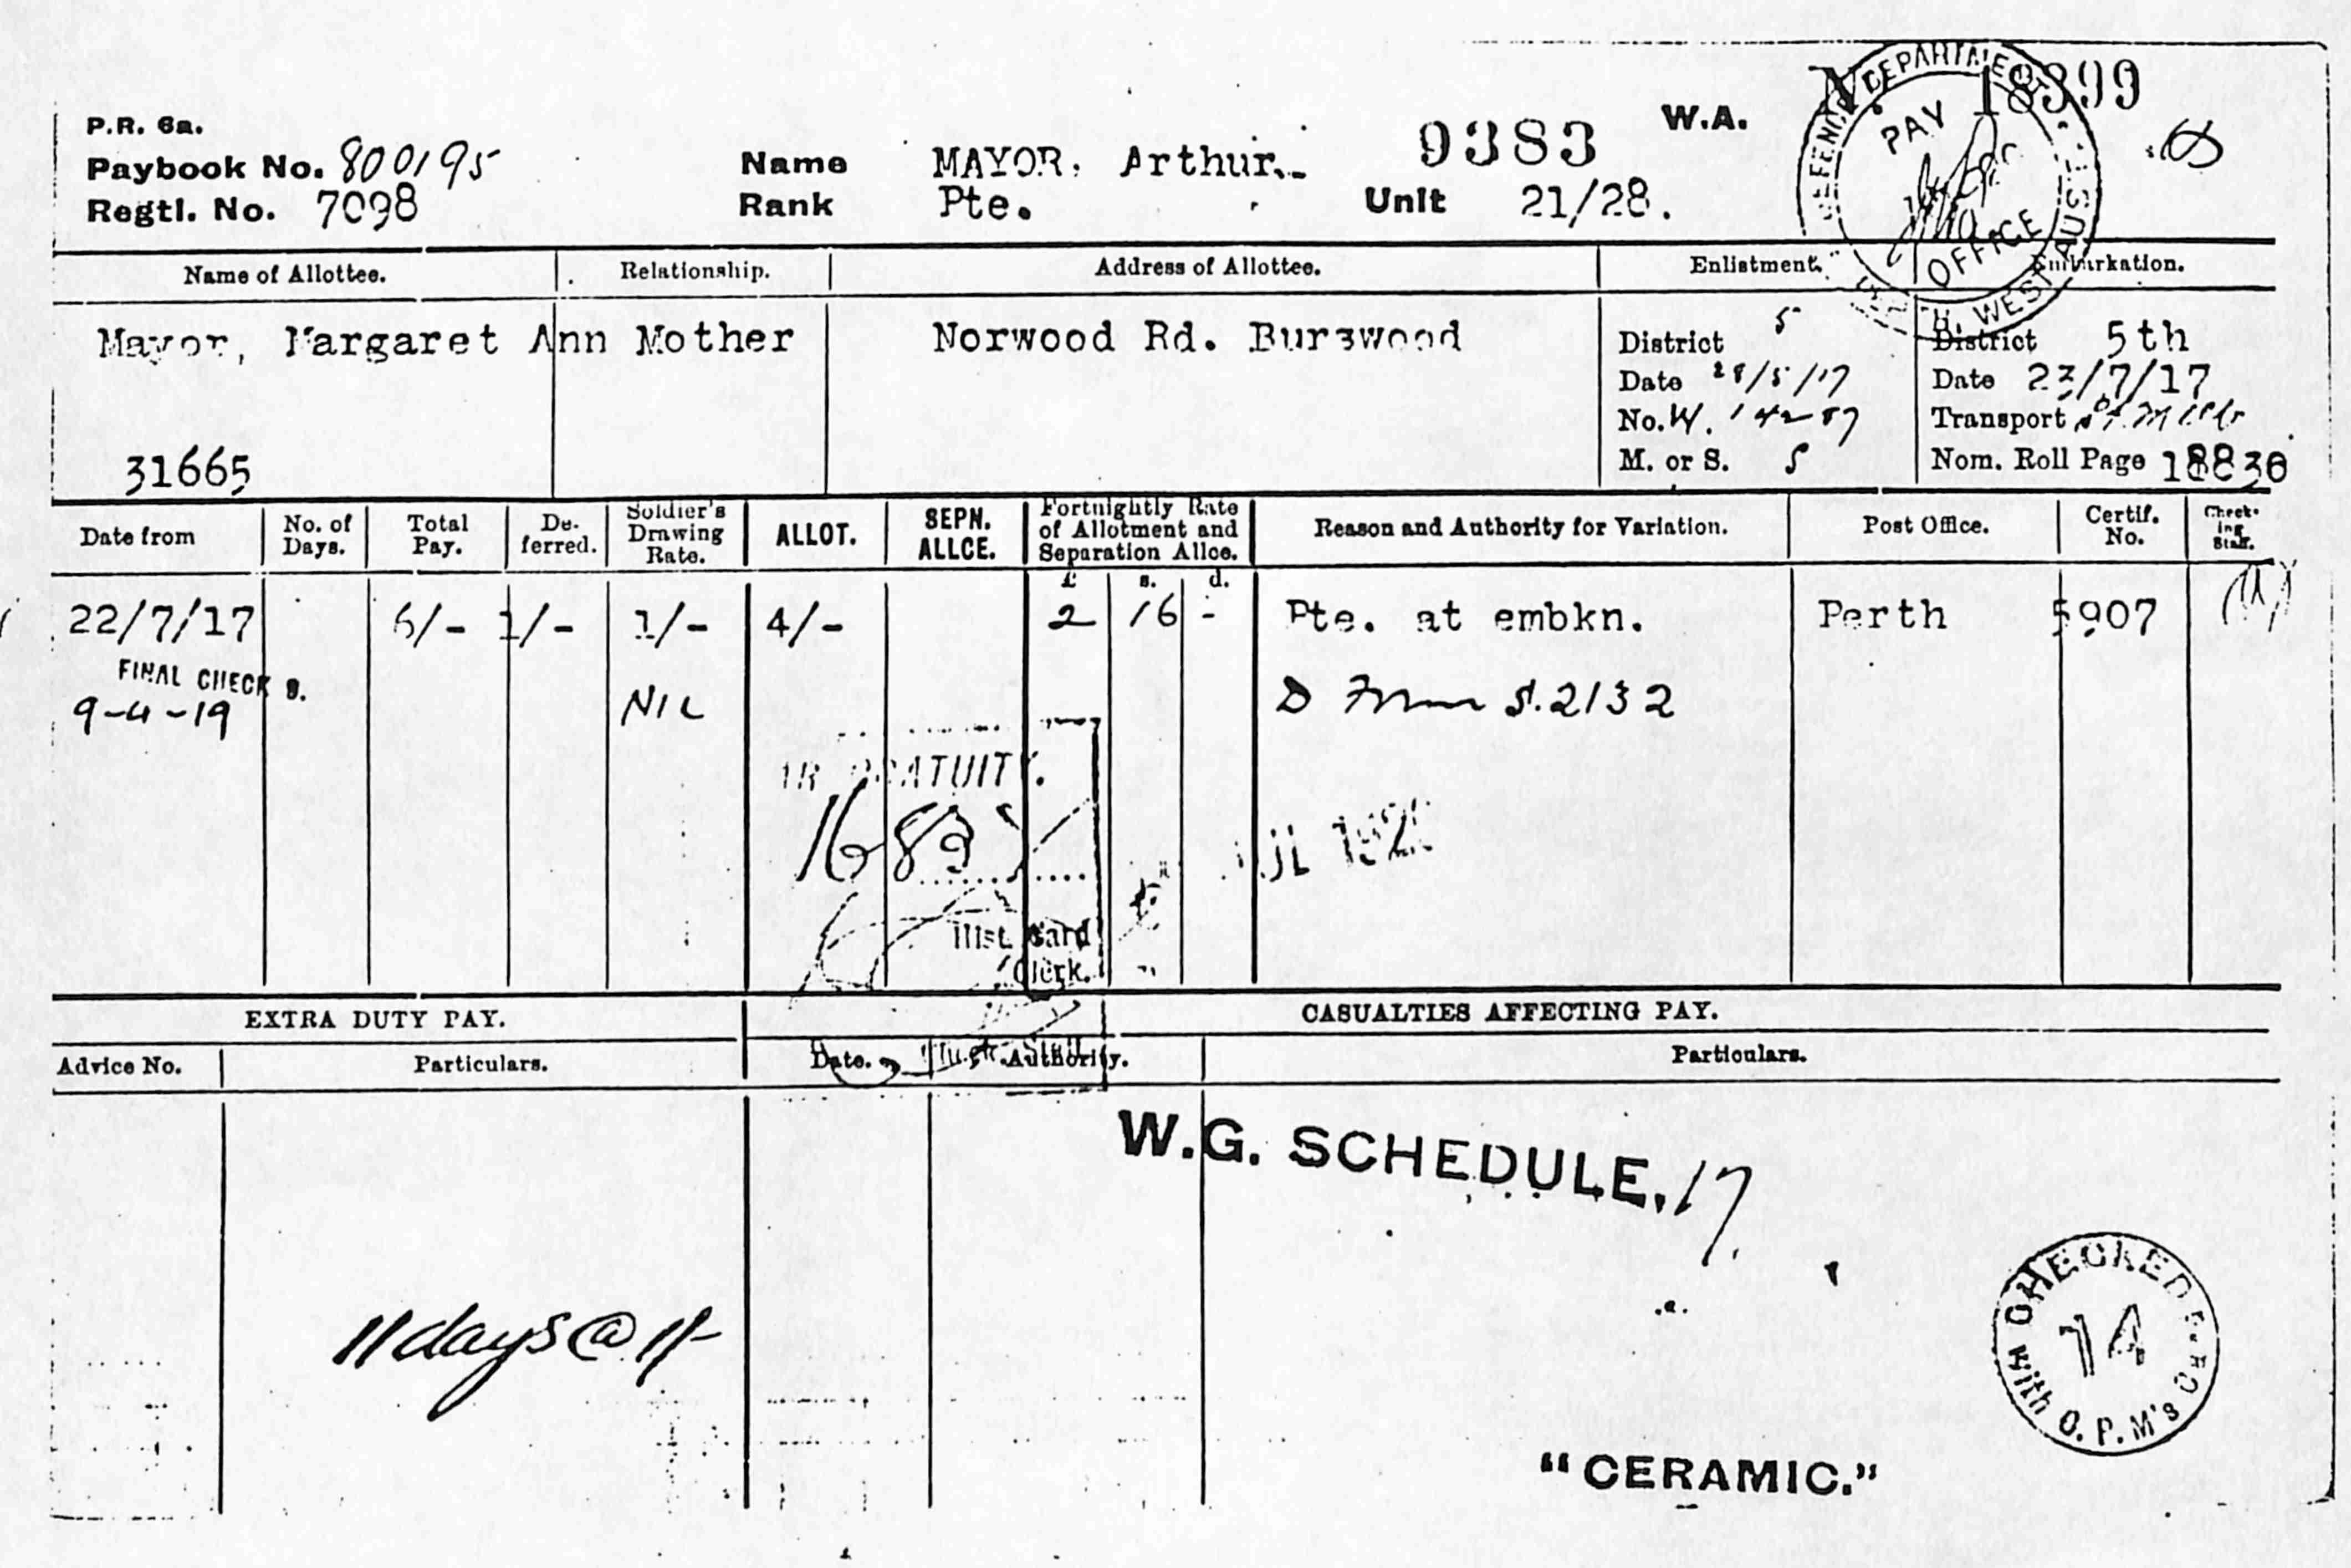 P.R. 6a.
Paybook No. 800195
Regtl. No. 7098
Name MAYOR, Arthur.
Rank Pte.
9383
Unit 21/28.
W.A.
18399
DEFENCE DEPARTMENT
PAY
OFFICE
WEST AUST
Name of Allottee. Relationship. Address of Allottee. Enlistment. Embarkation.
Mayor, Margaret Ann Mother Norwood Rd. Burswood
31665
District 5
Date 28/5/17
No. W.
M. or S. S
District 5th
Date 23/7/17
Transport
Nom. Roll Page 18830
Date from No. of Days. Total Pay. De-ferred. Soldier's Drawing Rate. ALLOT. SEPN. ALLCE. Fortnightly Rate of Allotment and Separation Allce. Reason and Authority for Variation. Post Office. Certif. No. Check-ing Staff.
£ s. d.
22/7/17 6/- 1/- 1/- 4/- 2 16 - Pte. at embkn. Perth 5907
FINAL CHECK 9.
9-4-19 NIL D Form S.2132
GRATUITY.
Hist. Card
Clerk.
EXTRA DUTY PAY. CASUALTIES AFFECTING PAY.
Advice No. Particulars. Date. Authority. Particulars.
W.G. SCHEDULE. 17.
11 days @ 1/-
CHECKED
14
With O.P.M's
"CERAMIC."